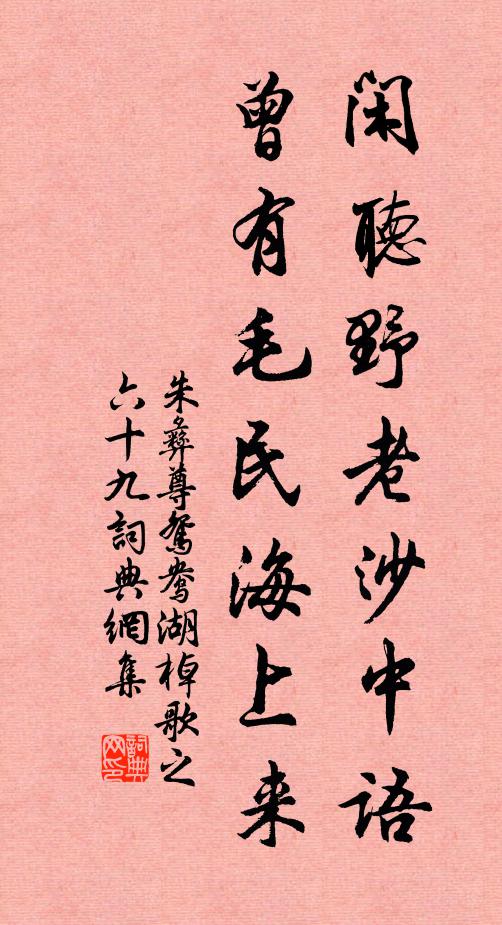 閑聽野老沙中語
曾有毛民海上来
朱彝尊鴛鴦湖棹歌之
六十九詞典網集
詞典网印